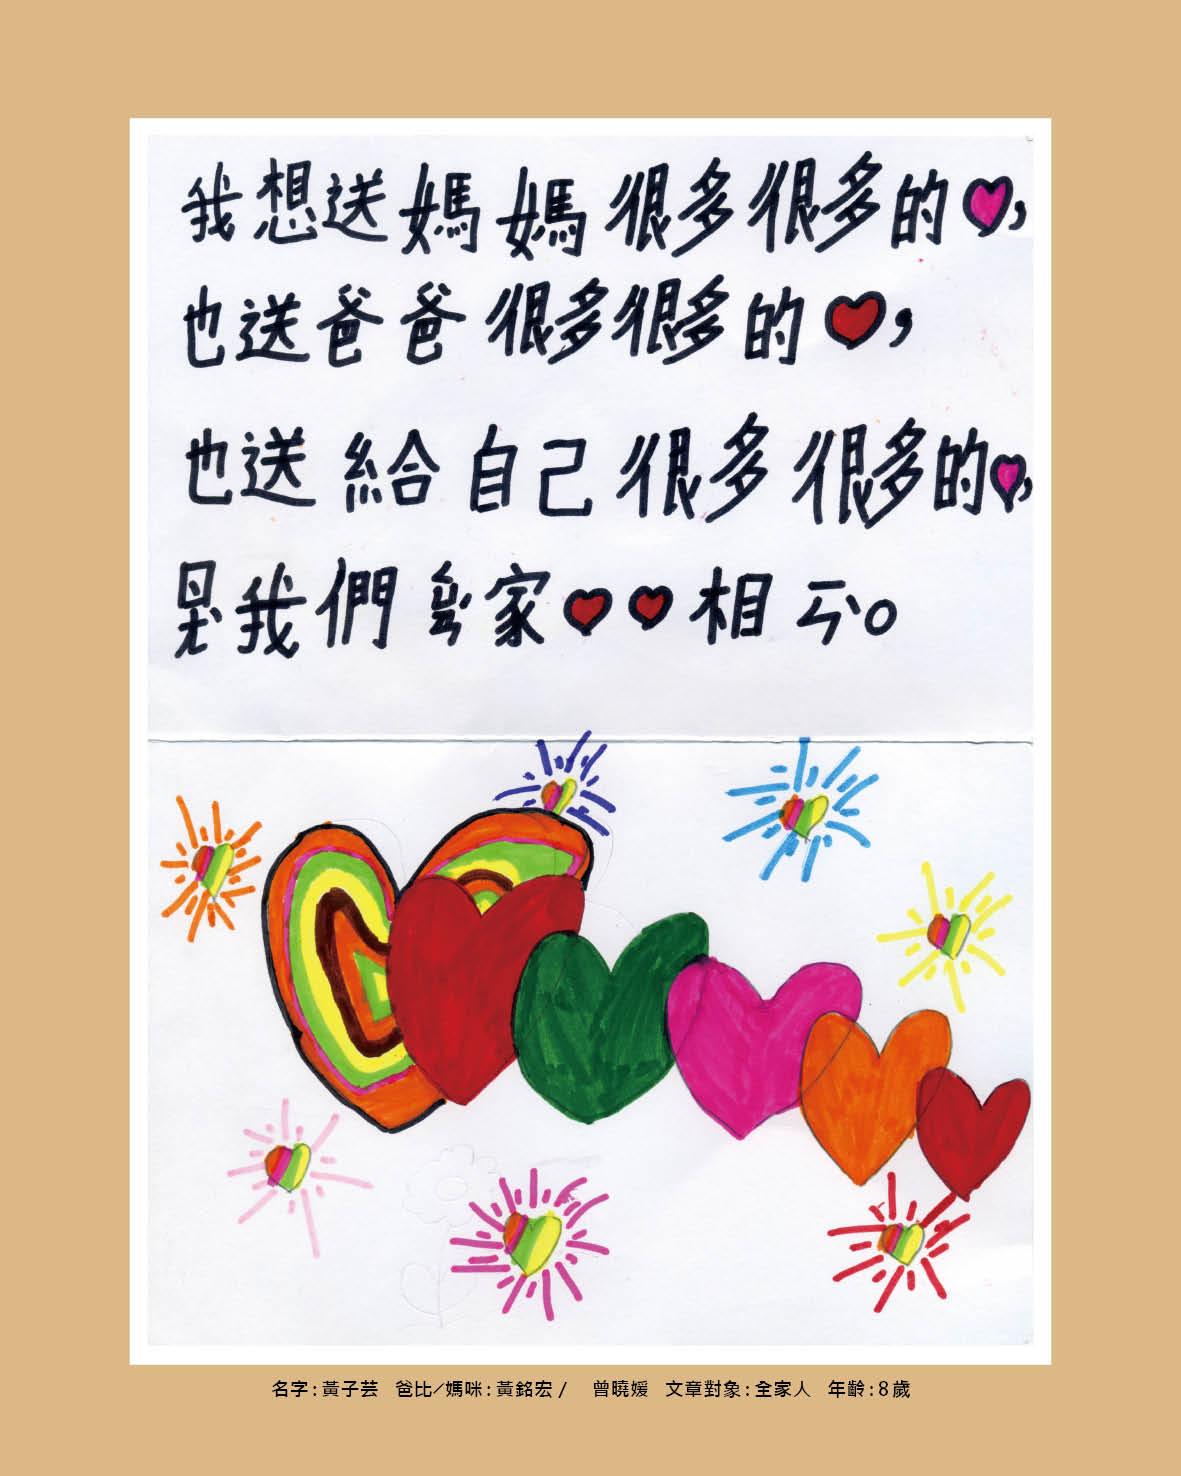 我想送媽媽很多很多的♥,
也送爸爸很多很多的♥,
也送給自己很多很多的♥,
是我們ㄑㄩㄢˊ家♥♥相ㄧㄣˋ。
名字:黃子芸 爸比/媽咪:黃銘宏/ 曾曉媛 文章對象:全家人 年齡:8歲